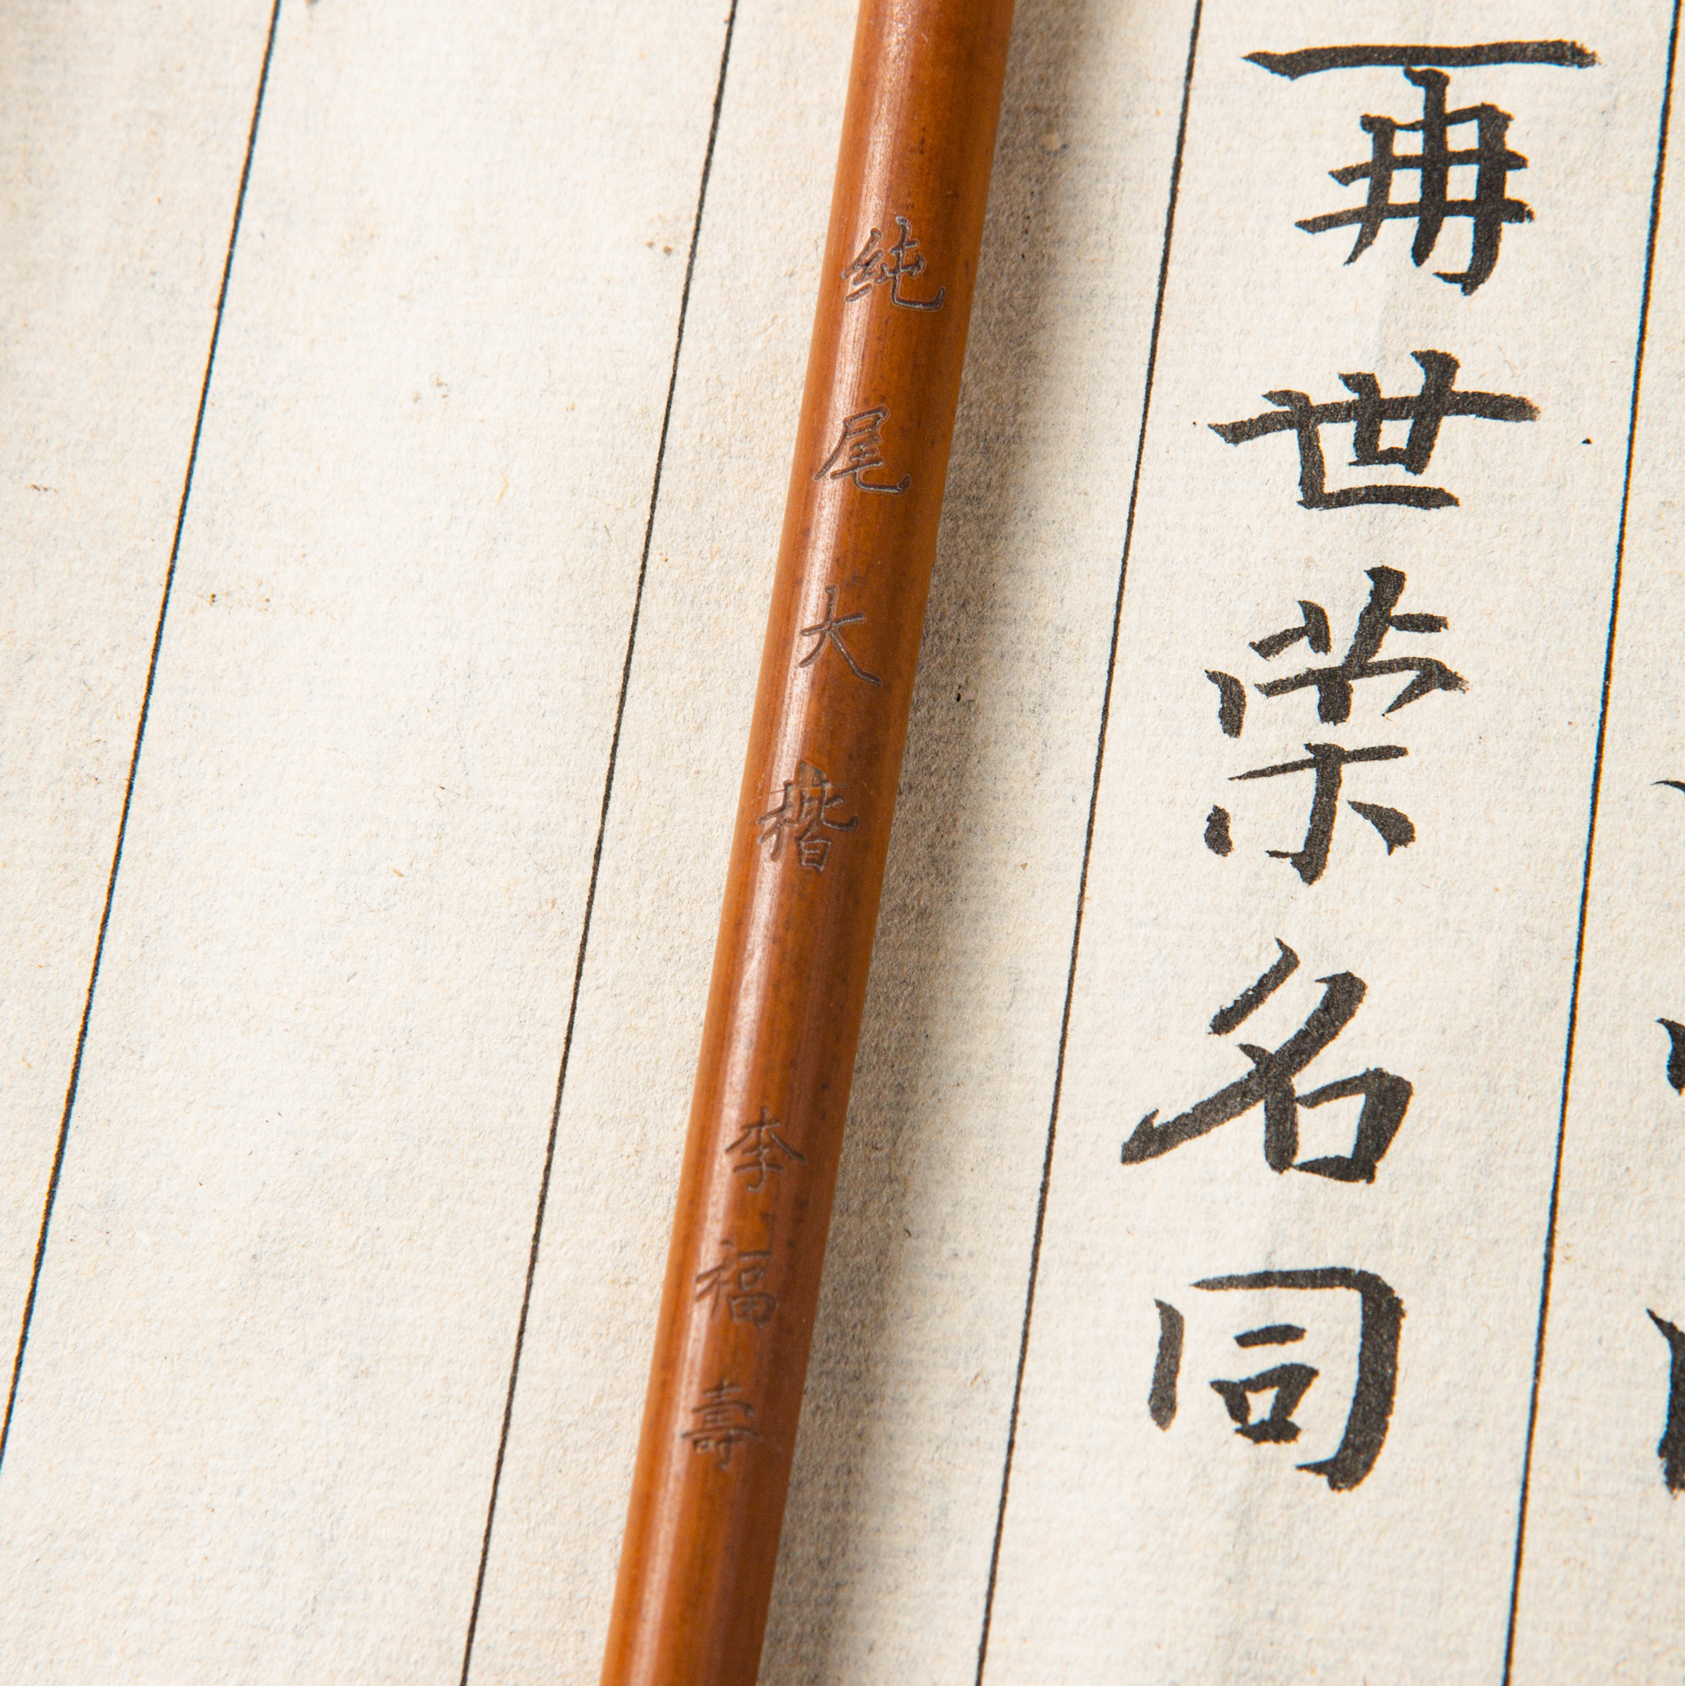 再世荣名同
純尾大楷 李福壽